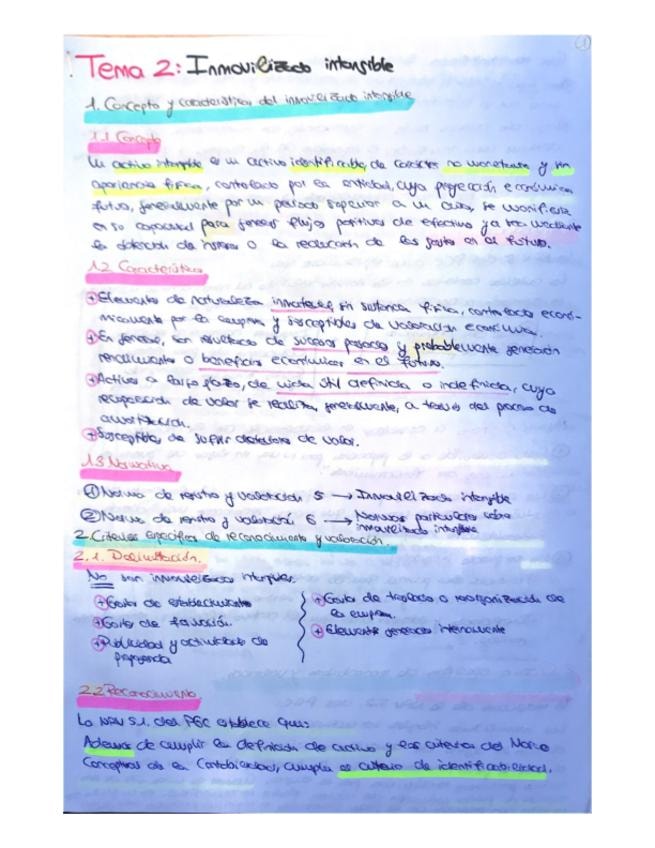 1
Tema 2: Inmovilizado intangible
1. Concepto y características del inmovilizado intangible
1.1 Concepto
Un activo intangible es un activo identificable, de carácter no monetario y sin
apariencia física, controlado por la entidad, cuya proyección económica
futura, generalmente por un período superior a un año, se manifiesta
en su capacidad para generar flujos positivos de efectivo ya sea mediante
la obtención de ingresos o la reducción de los gastos en el futuro.
1.2 Características
+ Elementos de naturaleza inmaterial, sin sustancia física, controlado econó-
micamente por la empresa y susceptibles de valoración económica.
+ En general, son resultado de sucesos pasados y probablemente generarán
rendimientos o beneficios económicos en el futuro.
+ Activos a largo plazo, de vida útil definida o indefinida, cuya
recuperación de valor se realiza, generalmente, a través del proceso de
amortización.
+ Susceptibles de sufrir deterioro de valor.
1.3 Normativa
① Norma de registro y valoración 5 → Inmovilizado intangible
② Norma de registro y valoración 6 → Normas particulares sobre
inmovilizado intangible
2. Criterios específicos de reconocimiento y valoración.
2.1. Delimitación.
No son inmovilizados intangibles:
+ Gastos de establecimiento
+ Gastos de fusión.
+ Publicidad y actividades de
propaganda
+ Gastos de traslado o reorganización de
la empresa.
+ Elementos generados internamente
2.2 Reconocimiento
La NRV 5.1. del PGC establece que:
Además de cumplir la definición de activo y los criterios del Marco
Conceptual de la Contabilidad, cumpla el criterio de identificabilidad.